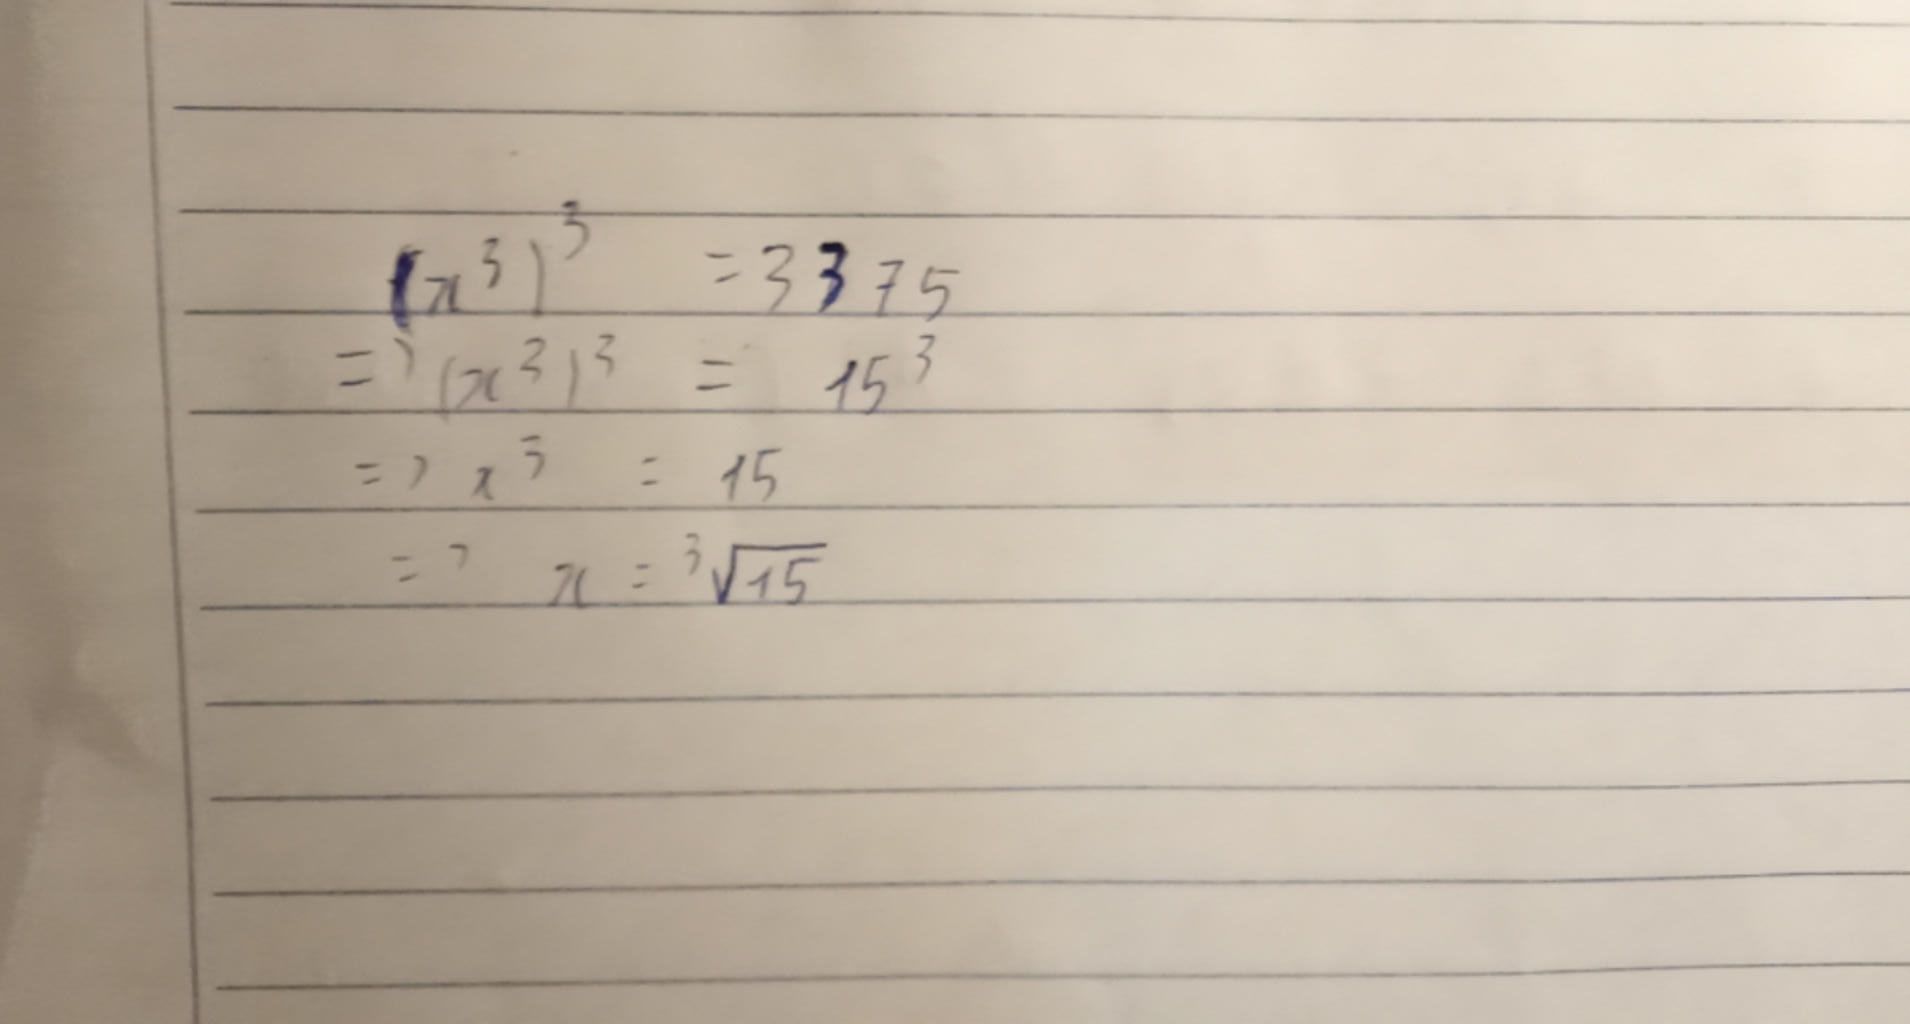 (x³)³ = 3375
=> (x³)³ = 15³
=> x³ = 15
=> x = ³√15